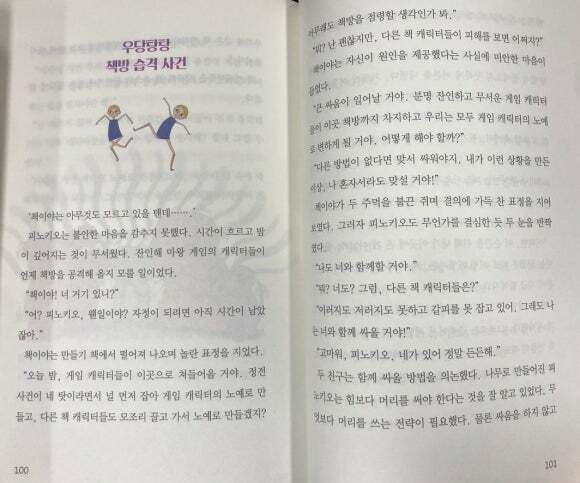 우당탕탕
책방 습격 사건
‘책이야는 아무것도 모르고 있을 텐데…….’
피노키오는 불안한 마음을 감추지 못했다. 시간이 흐르고 밤
이 깊어지는 것이 무서웠다. 잔인해 마왕 게임의 캐릭터들이
언제 책방을 공격해 올지 모를 일이었다.
“책이야! 너 거기 있니?”
“어? 피노키오, 웬일이야? 자정이 되려면 아직 시간이 남았
잖아.”
책이야는 만들기 책에서 떨어져 나오며 놀란 표정을 지었다.
“오늘 밤, 게임 캐릭터들이 이곳으로 쳐들어올 거야. 정전
사건이 네 탓이라면서 널 먼저 잡아 게임 캐릭터의 노예로 만
들고, 다른 책 캐릭터들도 모조리 끌고 가서 노예로 만들겠지?
100
아무래도 책방을 점령할 생각인가 봐.”
“뭐? 난 괜찮지만, 다른 책 캐릭터들이 피해를 보면 어쩌지?”
책이야는 자신이 원인을 제공했다는 사실에 미안한 마음이
들었다.
“큰 싸움이 일어날 거야. 분명 잔인하고 무서운 게임 캐릭터
들이 이곳 책방까지 차지하고 우리는 모두 게임 캐릭터의 노예
로 변하게 될 거야. 어떻게 해야 할까?”
“다른 방법이 없다면 맞서 싸워야지. 내가 이런 상황을 만든
이상, 나 혼자서라도 맞설 거야!”
책이야가 두 주먹을 불끈 쥐며 결의에 가득 찬 표정을 지어
보였다. 그러자 피노키오도 무언가를 결심한 듯 두 눈을 반짝
였다.
“나도 너와 함께할 거야.”
“뭐? 너도? 그럼, 다른 책 캐릭터들은?”
“이러지도 저러지도 못하고 갈피를 못 잡고 있어. 그래도 나
는 너와 함께 싸울 거야!”
“고마워, 피노키오. 네가 있어 정말 든든해.”
두 친구는 함께 싸울 방법을 의논했다. 나무로 만들어진 피
노키오는 힘보다 머리를 써야 한다는 것을 잘 알고 있었다. 무
엇보다 머리를 쓰는 전략이 필요했다. 물론 싸움을 하지 않고
101